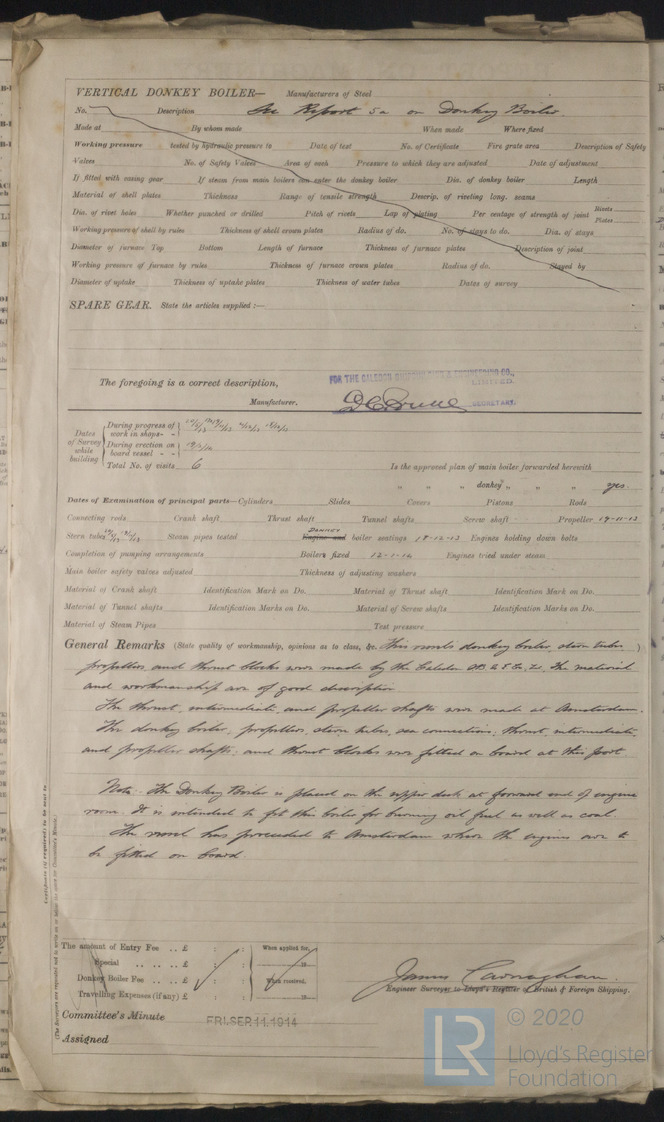 VERTICAL DONKEY BOILER— Manufacturers of Steel
No. Description See Report 5a on Donkey Boiler
Made at By whom made When made Where fixed
Working pressure tested by hydraulic pressure to Date of test No. of Certificate Fire grate area Description of Safety
Valves No. of Safety Valves Area of each Pressure to which they are adjusted Date of adjustment
If fitted with easing gear If steam from main boilers can enter the donkey boiler Dia. of donkey boiler Length
Material of shell plates Thickness Range of tensile strength Descrip. of riveting long. seams
Dia. of rivet holes Whether punched or drilled Pitch of rivets Lap of plating Per centage of strength of joint Rivets Plates
Working pressure of shell by rules Thickness of shell crown plates Radius of do. No. of stays to do. Dia. of stays
Diameter of furnace Top Bottom Length of furnace Thickness of furnace plates Description of joint
Working pressure of furnace by rules Thickness of furnace crown plates Radius of do. Stayed by
Diameter of uptake Thickness of uptake plates Thickness of water tubes Dates of survey
SPARE GEAR. State the articles supplied :—
The foregoing is a correct description,
FOR THE CALEDON SHIPBUILDING & ENGINEERING CO., LIMITED.
Manufacturer. SECRETARY.
Dates of Survey while building
During progress of work in shops - -
During erection on board vessel - -
Total No. of visits 6
Is the approved plan of main boiler forwarded herewith
" " " donkey " " " yes.
Dates of Examination of principal parts—Cylinders Slides Covers Pistons Rods
Connecting rods Crank shaft Thrust shaft Tunnel shafts Screw shaft Propeller 19-11-13
Stern tube Steam pipes tested DONKEY Engine and boiler seatings 18-12-13 Engines holding down bolts
Completion of pumping arrangements Boilers fixed 12-1-14 Engines tried under steam
Main boiler safety valves adjusted Thickness of adjusting washers
Material of Crank shaft Identification Mark on Do. Material of Thrust shaft Identification Mark on Do.
Material of Tunnel shafts Identification Marks on Do. Material of Screw shafts Identification Marks on Do.
Material of Steam Pipes Test pressure
General Remarks (State quality of workmanship, opinions as to class, &c. This vessel's donkey boiler, stern tubes )
propellers and thrust blocks were made by the Caledon SB & E Co. Ld. The material
and workmanship are of good description
The thrust, intermediate, and propeller shafts were made at Amsterdam.
The donkey boiler, propellers, stern tubes, sea connections, thrust intermediate
and propeller shafts, and thrust blocks were fitted on board at this port
Note. The Donkey Boiler is placed on the upper deck at forward end of engine
room. It is intended to fit this boiler for burning oil fuel as well as coal.
The vessel has proceeded to Amsterdam where the engines are to
be fitted on board
The amount of Entry Fee .. £ : : When applied for,
Special .. .. £ : : 19
Donkey Boiler Fee .. £ : : When received,
Travelling Expenses (if any) £ : : 19
James Cavanaghan.
Engineer Surveyor to Lloyd's Register of British & Foreign Shipping.
Committee's Minute FRI. SEP 11. 1914
Assigned
© 2020
LR
Lloyd's Register
Foundation